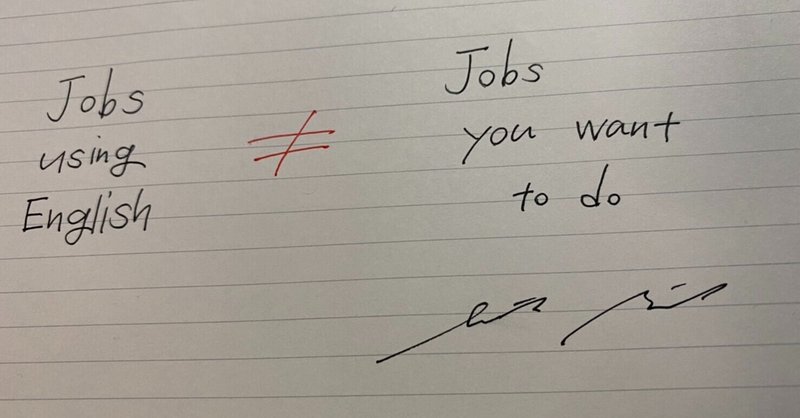 Jobs
using
English
≠
Jobs
you want
to do